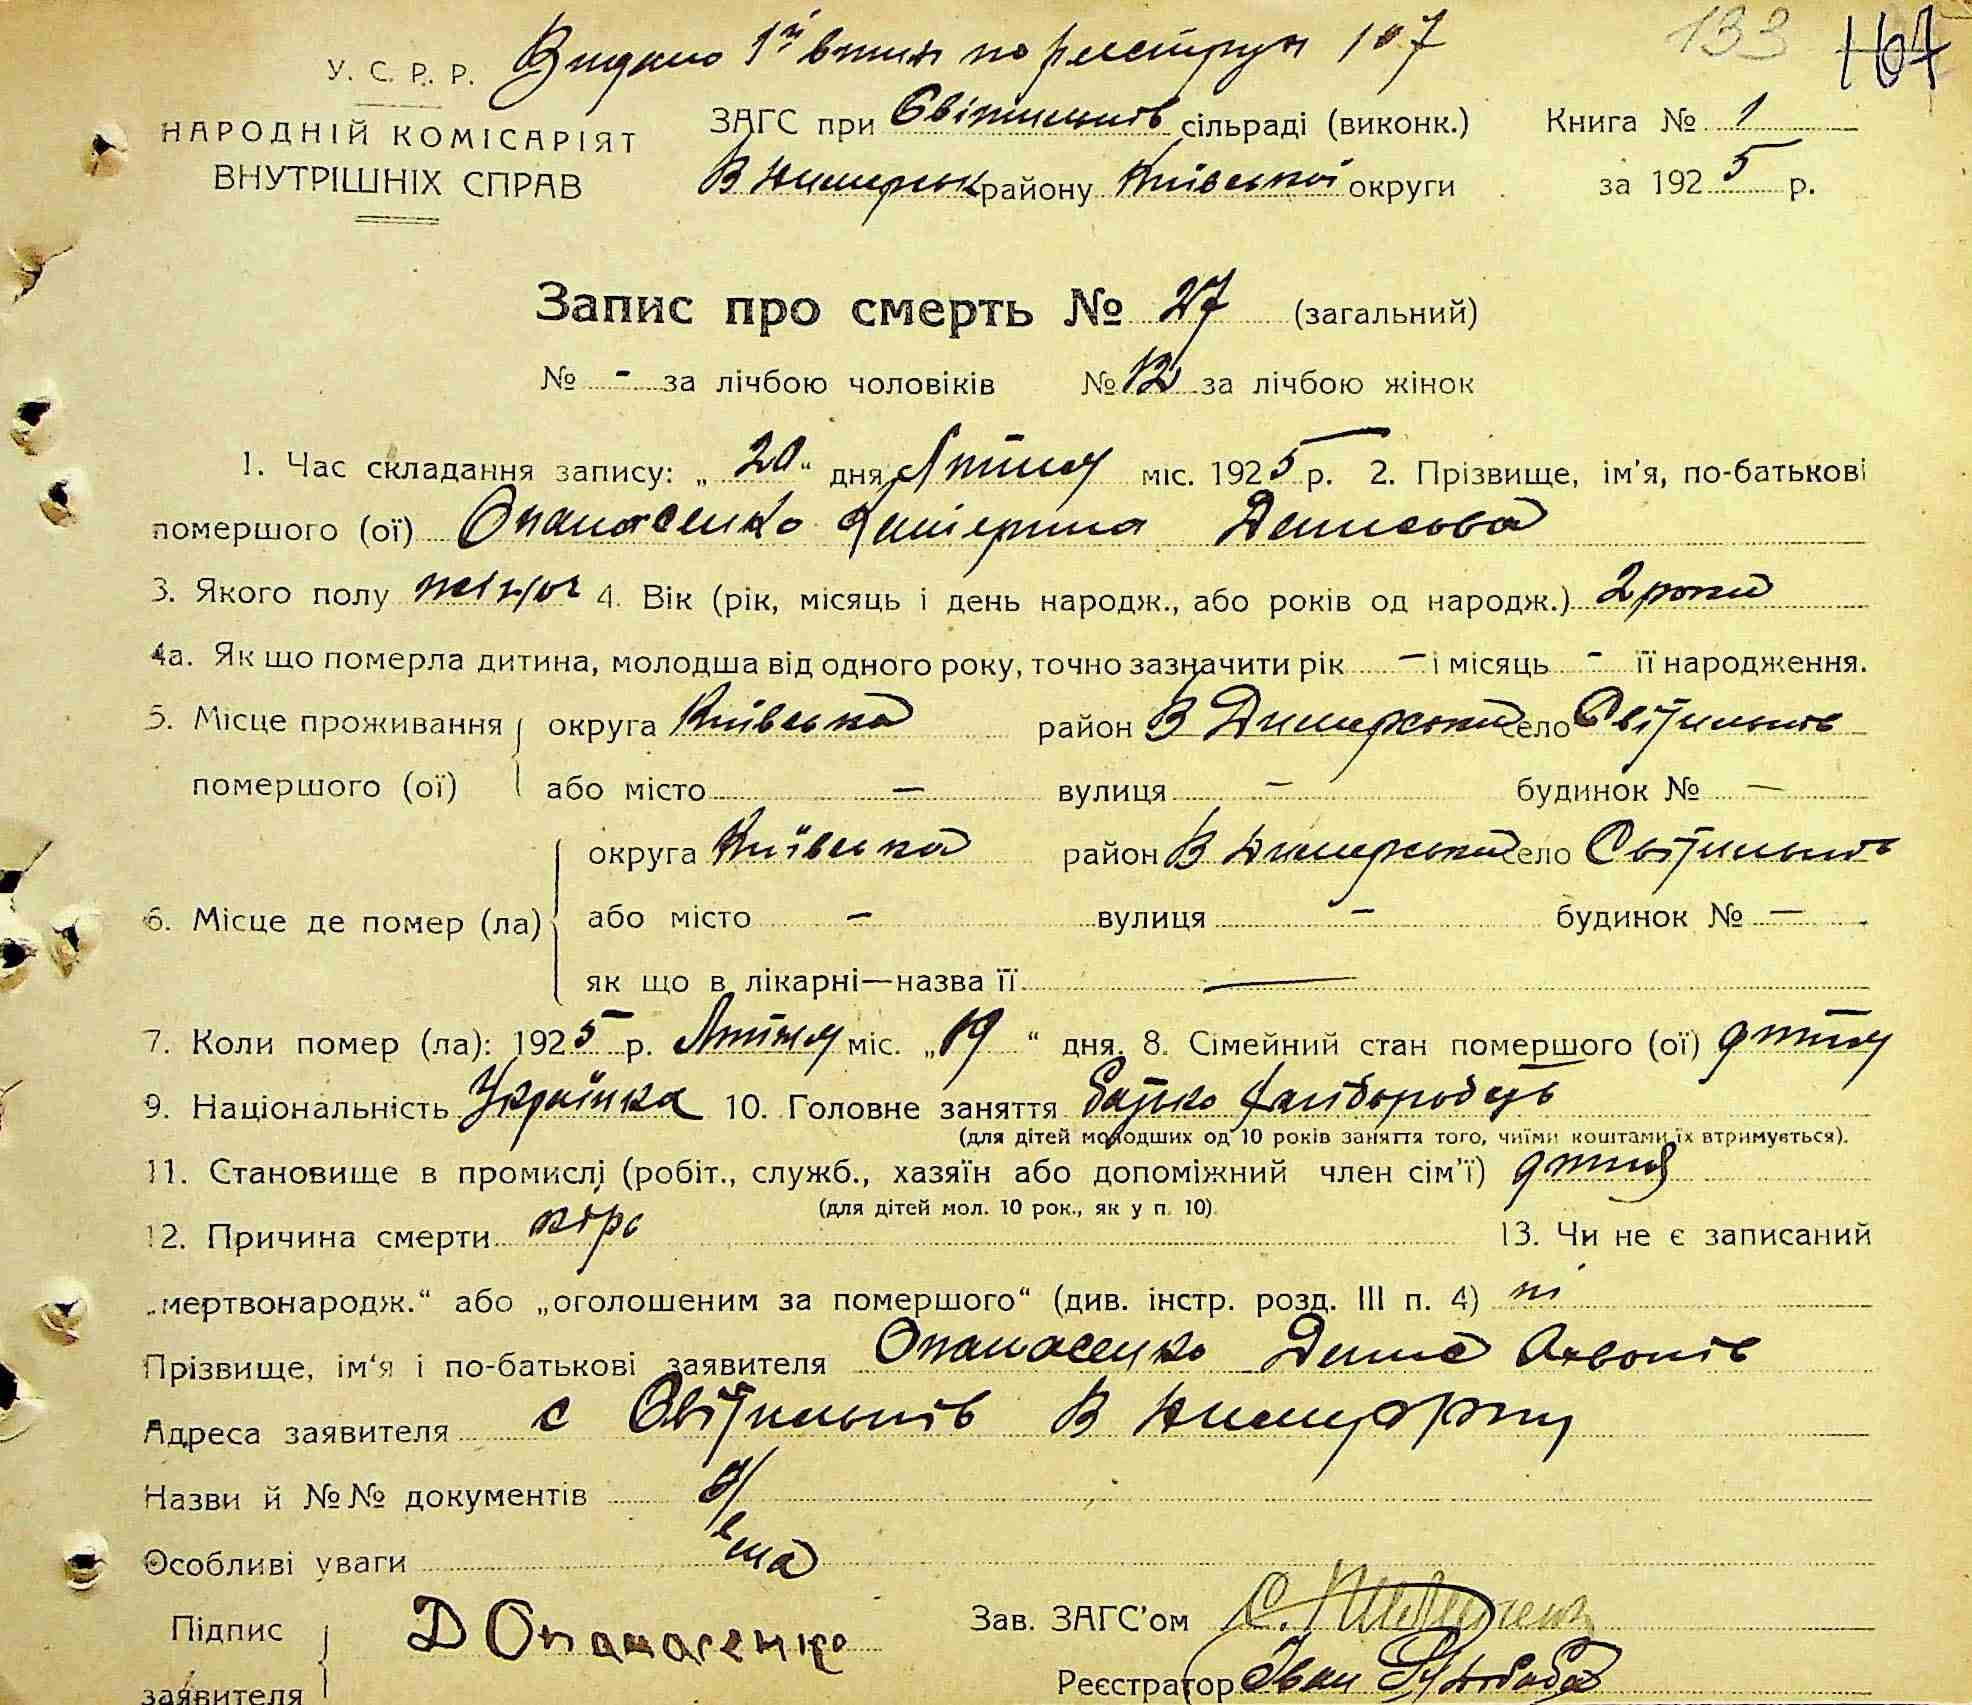 133 167
У. С. Р. Р. Видано 1й витяг по реєстру 107
НАРОДНІЙ КОМІСАРІЯТ
ВНУТРІШНІХ СПРАВ
ЗАГС при Світильнів сільраді (виконк.) Книга № 1
В Димерськ району Київської округи за 1925 р.
Запис про смерть № 27 (загальний)
№ - за лічбою чоловіків № 12 за лічбою жінок
1. Час складання запису: „20“ дня Лютня міс. 1925 р. 2. Прізвище, ім'я, по-батькові
помершого (ої) Опанасенко Катерина Денисова
3. Якого полу жіноч 4. Вік (рік, місяць і день народж., або років од народж.) 2 роки
4а. Як що померла дитина, молодша від одного року, точно зазначити рік — і місяць - її народження.
5. Місце проживання округа Київська район В Димерський село Світильнів
помершого (ої) або місто — вулиця — будинок № —
округа Київська район В Димерський село Світильнів
6. Місце де помер (ла) або місто — вулиця — будинок № —
як що в лікарні—назва її —
7. Коли помер (ла): 1925 р. Лютня міс. „19“ дня. 8. Сімейний стан помершого (ої) дитин
9. Національність Українка 10. Головне заняття батько хлібороб
(для дітей молодших од 10 років заняття того, чиїми коштами їх втримується).
11. Становище в промислі (робіт., служб., хазяїн або допоміжний член сім'ї) дитин
(для дітей мол. 10 рок., як у п. 10).
12. Причина смерти кір 13. Чи не є записаний
„мертвонародж.“ або „оголошеним за помершого“ (див. інстр. розд. III п. 4) ні
Прізвище, ім'я і по-батькові заявителя Опанасенко Денис
Адреса заявителя с Світильнів В Димерку
Назви й №№ документів
Особливі уваги
Підпис
заявителя
Д Опанасенко
Зав. ЗАГС'ом
Реєстратор Іван